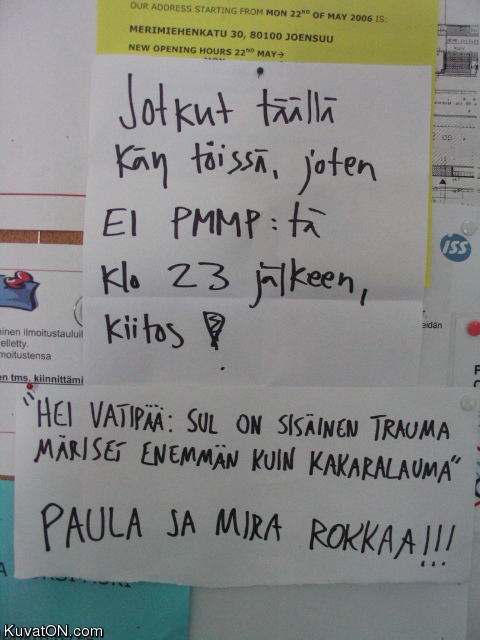 OUR ADDRESS STARTING FROM MON 22ND OF MAY 2006 IS:
MERIMIEHENKATU 30, 80100 JOENSUU
NEW OPENING HOURS 22ND MAY→
Jotkut täällä
käy töissä, joten
EI PMMP:tä
klo 23 jälkeen,
kiitos !
ISS
inen ilmoitustaulul
elletty.
moitustensa
en tms. kiinnittämi
eidän
"HEI VATIPÄÄ: SUL ON SISÄINEN TRAUMA
MÄRISET ENEMMÄN KUIN KAKARALAUMA"
PAULA JA MIRA ROKKAA!!!
KuvatON.com